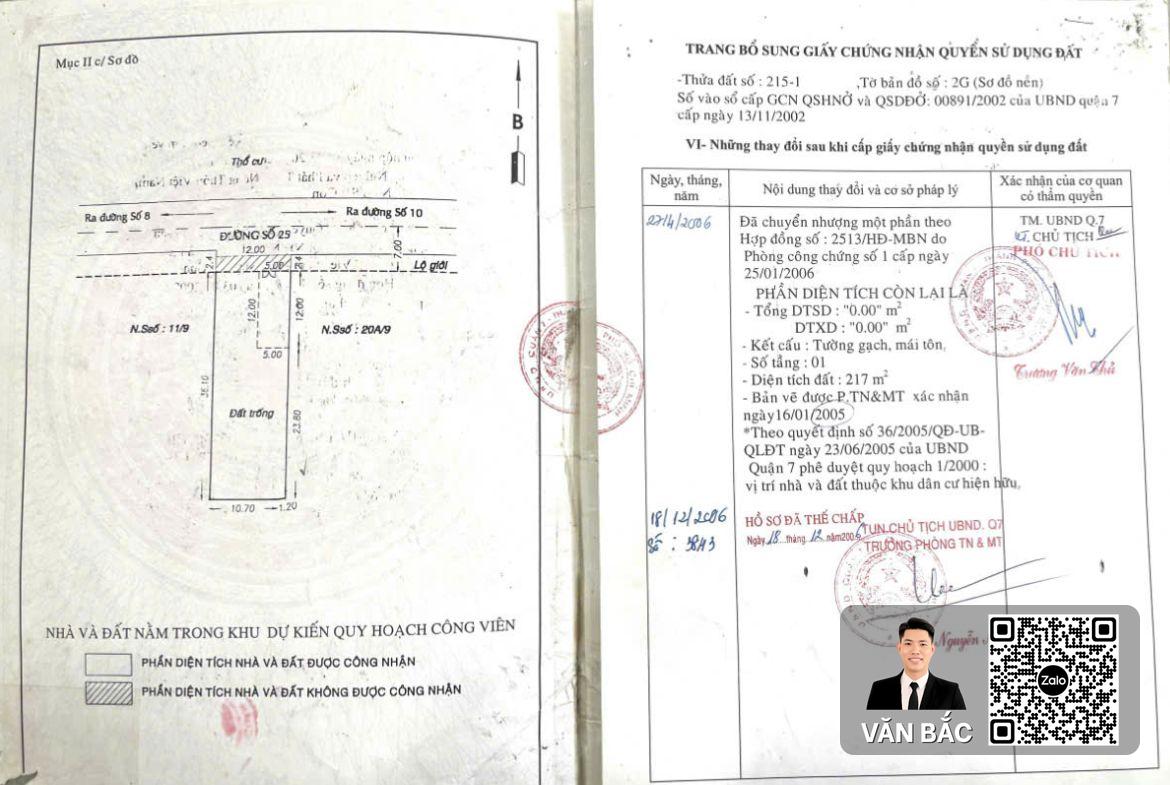 Mục II c/ Sơ đồ
B
Thổ cư
Ra đường Số 8
Ra đường Số 10
ĐƯỜNG SỐ 25
12.00
7.00
2.4
5.00
2.4
Lộ giới
12.00
12.00
N.Ssố : 11/9
N.Ssố : 20A/9
5.00
36.10
Đất trống
23.80
10.70
1.20
NHÀ VÀ ĐẤT NẰM TRONG KHU DỰ KIẾN QUY HOẠCH CÔNG VIÊN
PHẦN DIỆN TÍCH NHÀ VÀ ĐẤT ĐƯỢC CÔNG NHẬN
PHẦN DIỆN TÍCH NHÀ VÀ ĐẤT KHÔNG ĐƯỢC CÔNG NHẬN
TRANG BỔ SUNG GIẤY CHỨNG NHẬN QUYỀN SỬ DỤNG ĐẤT
-Thửa đất số : 215-1 ,Tờ bản đồ số : 2G (Sơ đồ nền)
Số vào sổ cấp GCN QSHNỞ và QSDĐỞ: 00891/2002 của UBND quận 7
cấp ngày 13/11/2002
VI- Những thay đổi sau khi cấp giấy chứng nhận quyền sử dụng đất
Ngày, tháng,
năm
Nội dung thay đổi và cơ sở pháp lý
Xác nhận của cơ quan
có thẩm quyền
27/4/2006
Đã chuyển nhượng một phần theo
Hợp đồng số : 2513/HĐ-MBN do
Phòng công chứng số 1 cấp ngày
25/01/2006
PHẦN DIỆN TÍCH CÒN LẠI LÀ
- Tổng DTSD : "0.00" m²
DTXD : "0.00" m²
- Kết cấu : Tường gạch, mái tôn,
- Số tầng : 01
- Diện tích đất : 217 m²
- Bản vẽ được P.TN&MT xác nhận
ngày16/01/2005
*Theo quyết định số 36/2005/QĐ-UB-
QLĐT ngày 23/06/2005 của UBND
Quận 7 phê duyệt quy hoạch 1/2000 :
vị trí nhà và đất thuộc khu dân cư hiện hữu,
TM. UBND Q.7
KT. CHỦ TỊCH
PHÓ CHỦ TỊCH
Trương Văn
18/12/2006
Số : 3843
HỒ SƠ ĐÃ THẾ CHẤP
Ngày 18 tháng 12 năm 2006
TUN CHỦ TỊCH UBND. Q7
TRƯỞNG PHÒNG TN & MT
Nguyễn
VĂN BẮC
Zalo